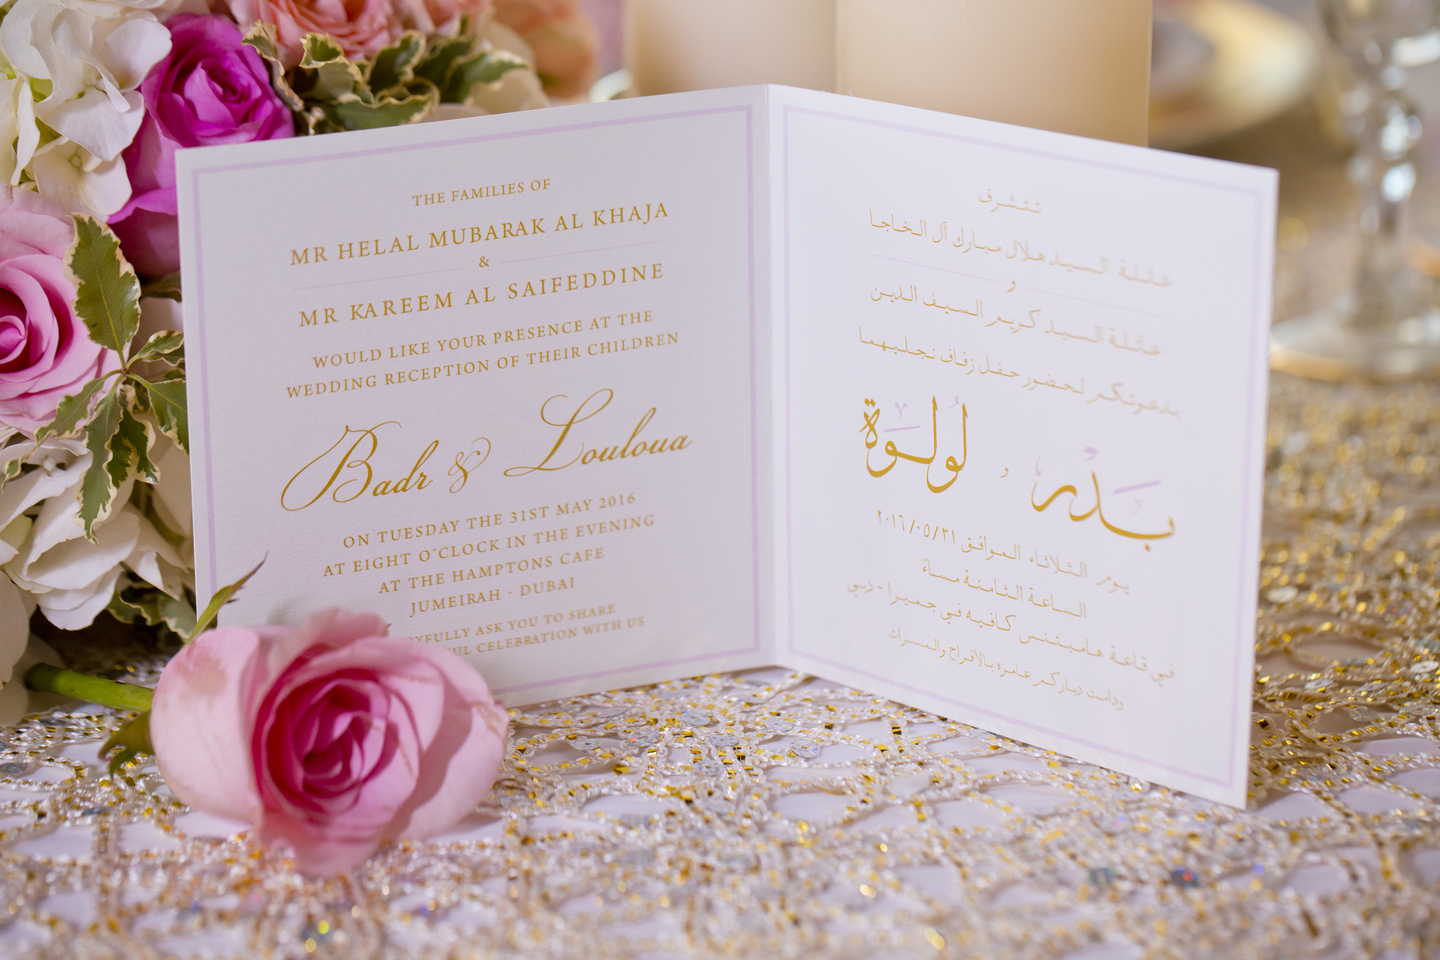 THE FAMILIES OF
MR HELAL MUBARAK AL KHAJA
&
MR KAREEM AL SAIFEDDINE
WOULD LIKE YOUR PRESENCE AT THE
WEDDING RECEPTION OF THEIR CHILDREN
Badr & Louloua
ON TUESDAY THE 31ST MAY 2016
AT EIGHT O'CLOCK IN THE EVENING
AT THE HAMPTONS CAFE
JUMEIRAH - DUBAI
ASK YOU TO SHARE
CELEBRATION WITH US
تتشرف
عائلة السيد هلال مبارك آل الخاجا
و
عائلة السيد كريم السيف الدين
بدعوتكم لحضور حفل زفاف نجليهما
بَدْر و لُولُوَة
يوم الثلاثاء الموافق ٢٠١٦/٠٥/٣١
الساعة الثامنة مساءً
في قاعة هامبتنس كافيه في جميرا - دبي
ودامت دياركم عامرة بالأفراح والمسرات